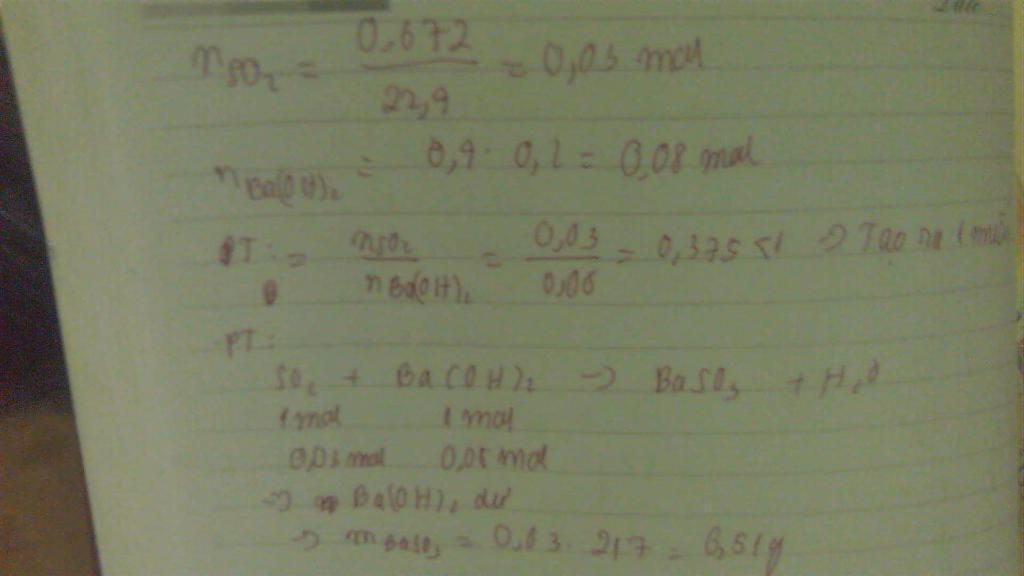 nSO₂ = 0.672 / 22,4 = 0,03 mol
nBa(OH)₂ = 0,4 . 0,2 = 0,08 mol
PT: = nSO₂ / nBa(OH)₂ = 0,03 / 0,08 = 0,375 <1 => Tạo ra 1 muối
PT:
SO₂ + Ba(OH)₂ -> BaSO₃ + H₂O
1 mol 1 mol
0,03 mol 0,08 mol
=> Ba(OH)₂ dư
=> mBaSO₃ = 0,03. 217 = 6,51g